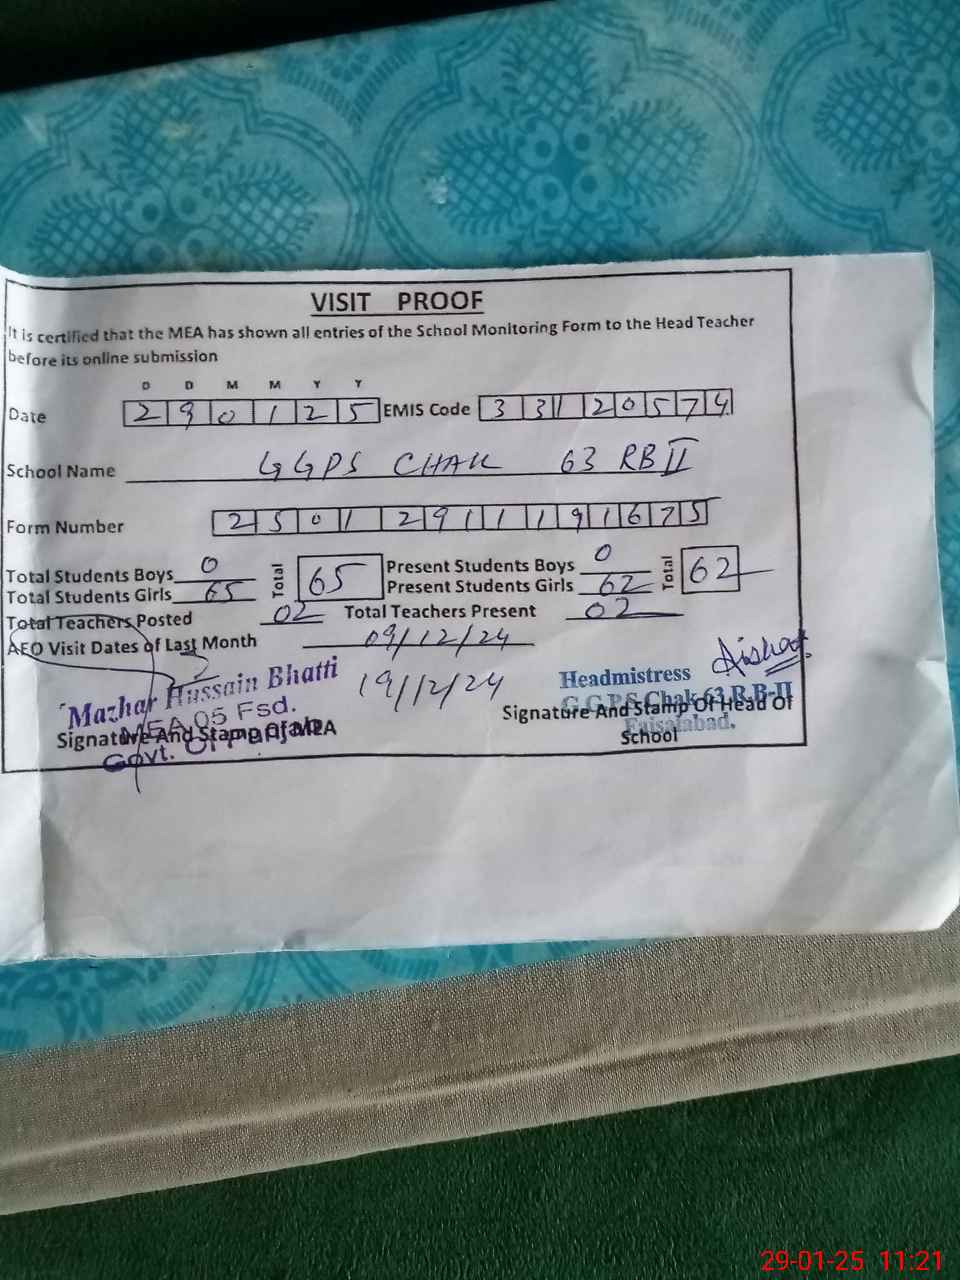 VISIT PROOF
It is certified that the MEA has shown all entries of the School Monitoring Form to the Head Teacher
before its online submission
D D M M Y Y
Date 290125 EMIS Code 33120574
School Name GGPS CHAK 63 RB II
Form Number 250129111191675
Total Students Boys 0 Total 65 Present Students Boys 0 Total 62
Total Students Girls 65 Present Students Girls 62
Total Teachers Posted 02 Total Teachers Present 02
AEO Visit Dates of Last Month 09/12/24
19/12/24
Mazhar Hussain Bhatti
MEA 05 Fsd.
Govt. Of Punjab
Signature And Stamp Of MEA
Aisha
Headmistress
G.G.P.S Chak 63 R.B-II
Faisalabad.
Signature And Stamp Of Head Of
School
29-01-25 11:21